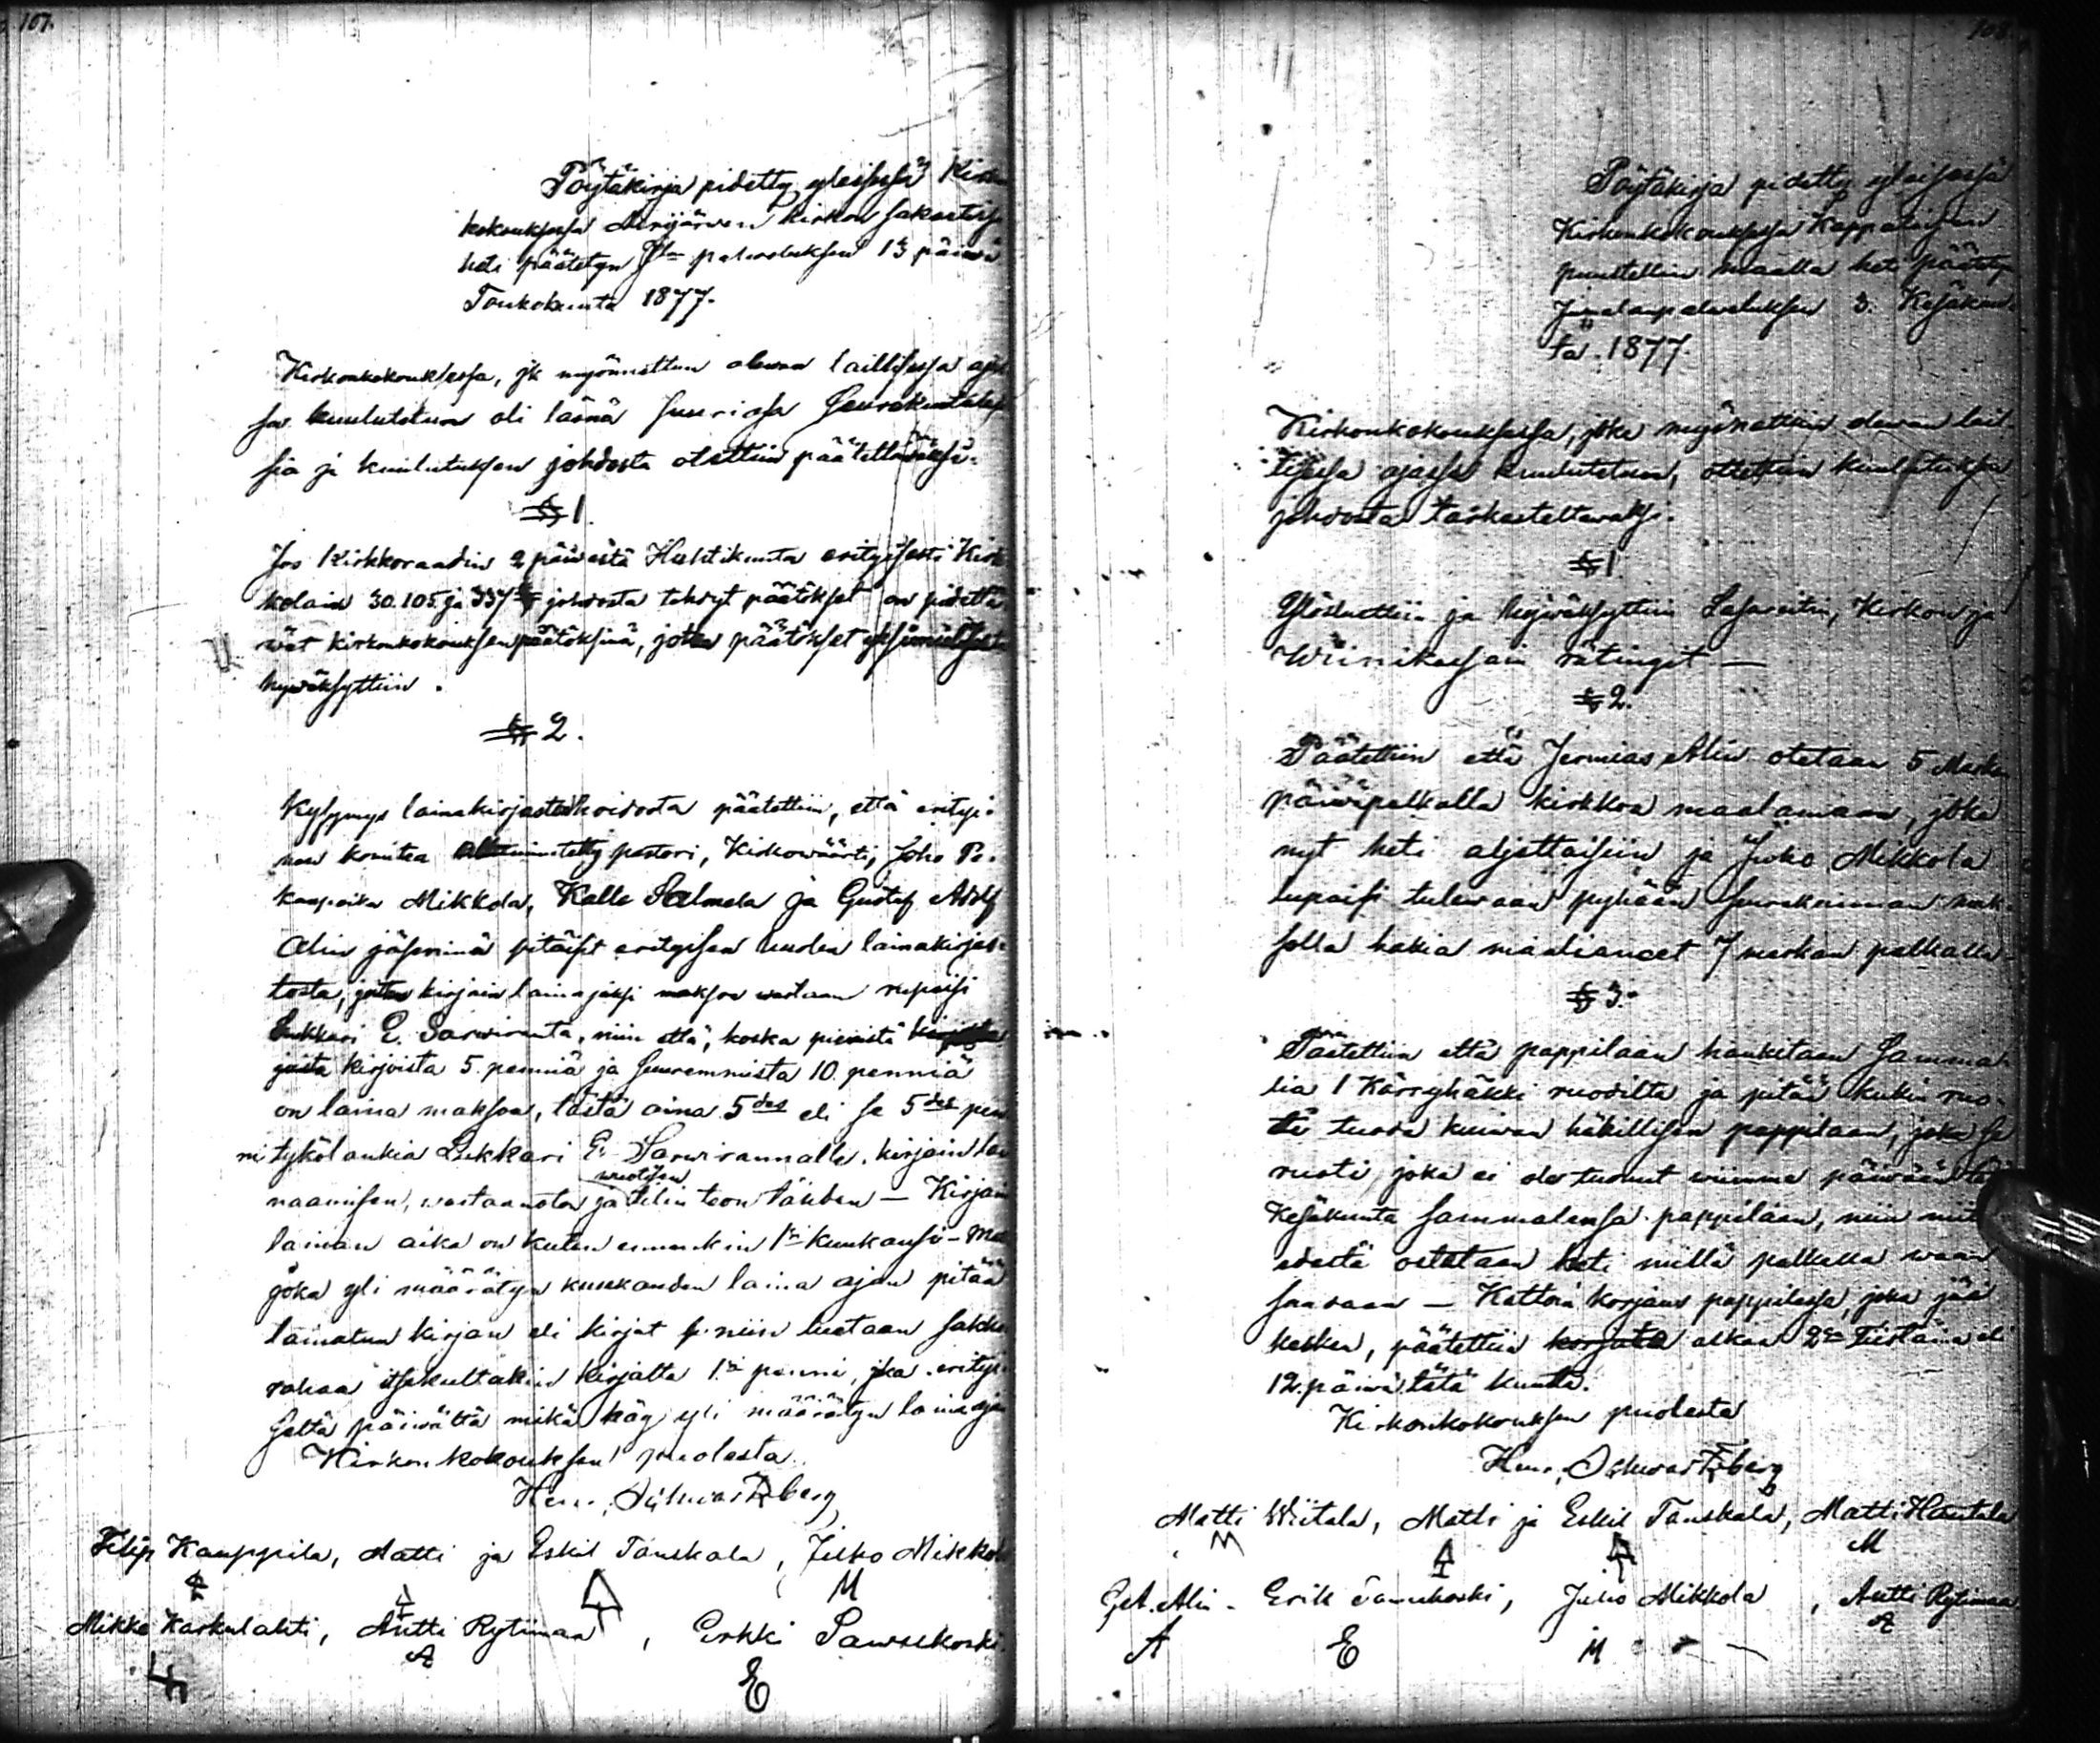 107.
Pöytäkirja pidetty yleisessä Kirkon
kokouksessa Merijärwen kirkon sakastissa
heti päätetyn Jln palweluksen 13 päiwä
Toukokuuta 1877.
Kirkonkokouksessa, jk myönnettiin olewan laillisessa ajas
sa kuulutetun oli läsnä suuri osa Seurakuntalai
sia ja kuulutuksen johdosta otettiin päätettäwäksi:
§ 1.
Jos Kirkkoraadin 2 päiwästä Huhtikuuta erityisesti Kirk
kolain 30. 105. ja 337 § johdosta tehdyt päätökset on pidettä
wät kirkonkokouksen päätöksinä, jotka päätökset yksimielisesti
hywäksyttiin.
§ 2.
Kysymys lainakirjaston hoidosta päätettiin, että erityi-
nen komitea nimitetty pastori, Kirkowäärti, Joho Pe-
kanpoika Mikkola, Kalle Salmela ja Gustaf Adolf
Alin jäseninä pitäisit erityisen huolen lainakirjas-
tosta, jotka kirjain lainajaksi maksoa wastaan rupeisi
Lukkari E. Sarwiranta, niin että, koska pienistä
kirjoista 5. penniä ja suuremmista 10. penniä
on laina maksoa, tästä aina 5des eli se 5des pen
ni tykölankia Lukkari E. Sarwirannalle, kirjain lai
naamisen, wastaanoton ja wuotisen tilin teon tähden — Kirjain
lainan aika on kuten ennenkin 1si kuukausi —
joka yli määrätyn kuukauden laina ajan pitää
lainatun kirjan eli kirjat se niin luetaan sakko
rahaa itsekultakin kirjalta 1si penni, joka erityi-
seltä päiwältä mikä käy yli määrätyn laina ajan
Kirkon kokouksen puolesta
Henr. Schwartzberg
Filip Kauppila, Matti ja Eskil Tanskala, Juho Mikkola
M
Mikko Karkulahti, Antti Rytimaa, Erkki
A
E
108.
Pöytäkirja pidetty yleisessä
Kirkonkokouksessa Kappalaisen
puustellin maalla heti päätetyn
Jumalanpalweluksen 3. Kesäkuu-
ta. 1877.
Kirkonkokouksessa, joka myönnettiin olewan lail
lisessa ajassa kuulutetun, otettiin kuulutuksen
johdosta tarkasteltawaksi.
§ 1
Ylösluettiin ja hywäksyttiin Lasareitin, Kirkon ja
Wiinikassain rätingit —
§ 2.
Päätettiin että Jermias Alin otetaan 5 Markan
päiwäpalkalla kirkkoa maalamaan, joka
nyt heti aljettaisiin ja Juho Mikkola
lupaisi tulewaan pyhään seurakunnan mak-
solla hakia maaliaineet 7 markan palkalla —
§ 3.
Päätettiin että pappilaan hankitaan Samma-
lia 1 Kärryhäkki ruodilta ja pitää kukin ruo-
ti tuoda kuiwan häkillisen pappilaan, joka se
ruoti joka ei ole tuonut wiimme päiwään tätä
Kesäkuuta sammalensa pappilaan, niin niit
edestä ostetaan heti millä palkalla waan
saadaan — Katon korjaus pappilassa, joka jää
kesken, päätettiin alkaa 2na Tiistaina eli
12. päiwä tätä kuuta.
Kirkonkokouksen puolesta
Henr. Schwartzberg
Matti Wiitala, Matti ja Eskil Tanskala, Matti Hautala
M
M
G. A. Alin - Erik, Juho Mikkola, Antti Rytimaa
A
E
M
A